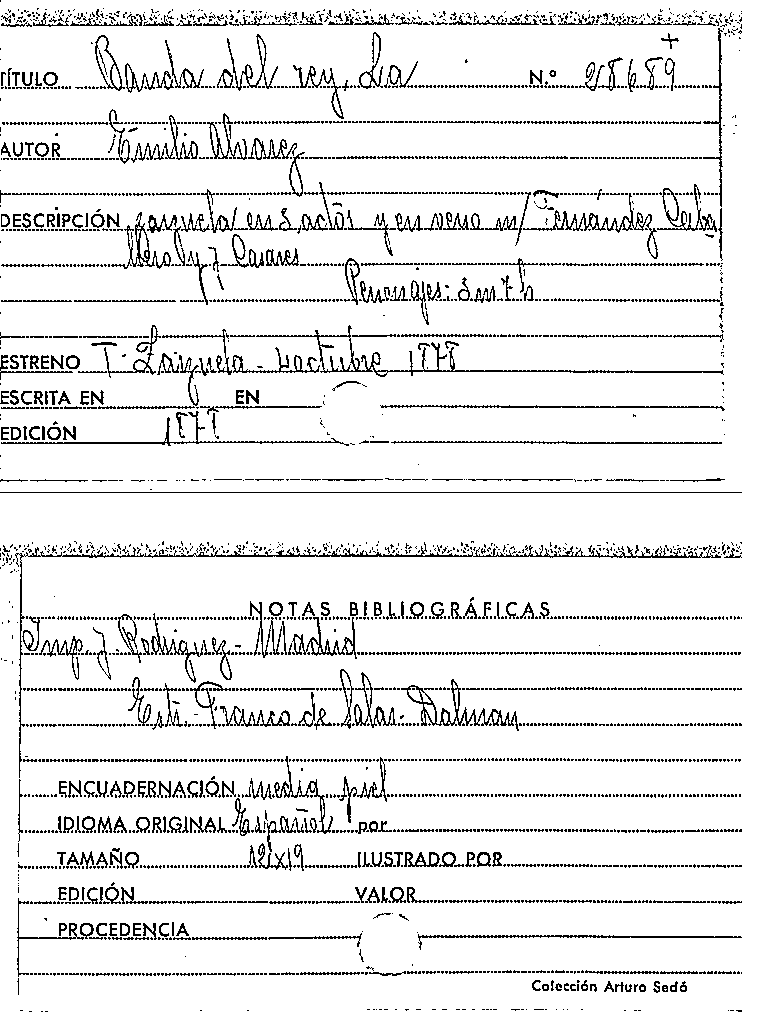 TÍTULO Banda del rey, La N.º 28689
AUTOR Emilio Alvarez
DESCRIPCIÓN zarzuela en 3 actos y en verso m/ Fernández Caba
llero y J Casares
Personajes: 3 m 7 h
ESTRENO T. Zarzuela - 4 octubre 1878
ESCRITA EN EN
EDICIÓN 1878
NOTAS BIBLIOGRÁFICAS
Imp. J. Rodriguez - Madrid
Estr. - Franco de Salas - Dalmau
ENCUADERNACIÓN media piel
IDIOMA ORIGINAL Español por
TAMAÑO 12'x19 ILUSTRADO POR
EDICIÓN VALOR
PROCEDENCIA
Colección Arturo Sedó